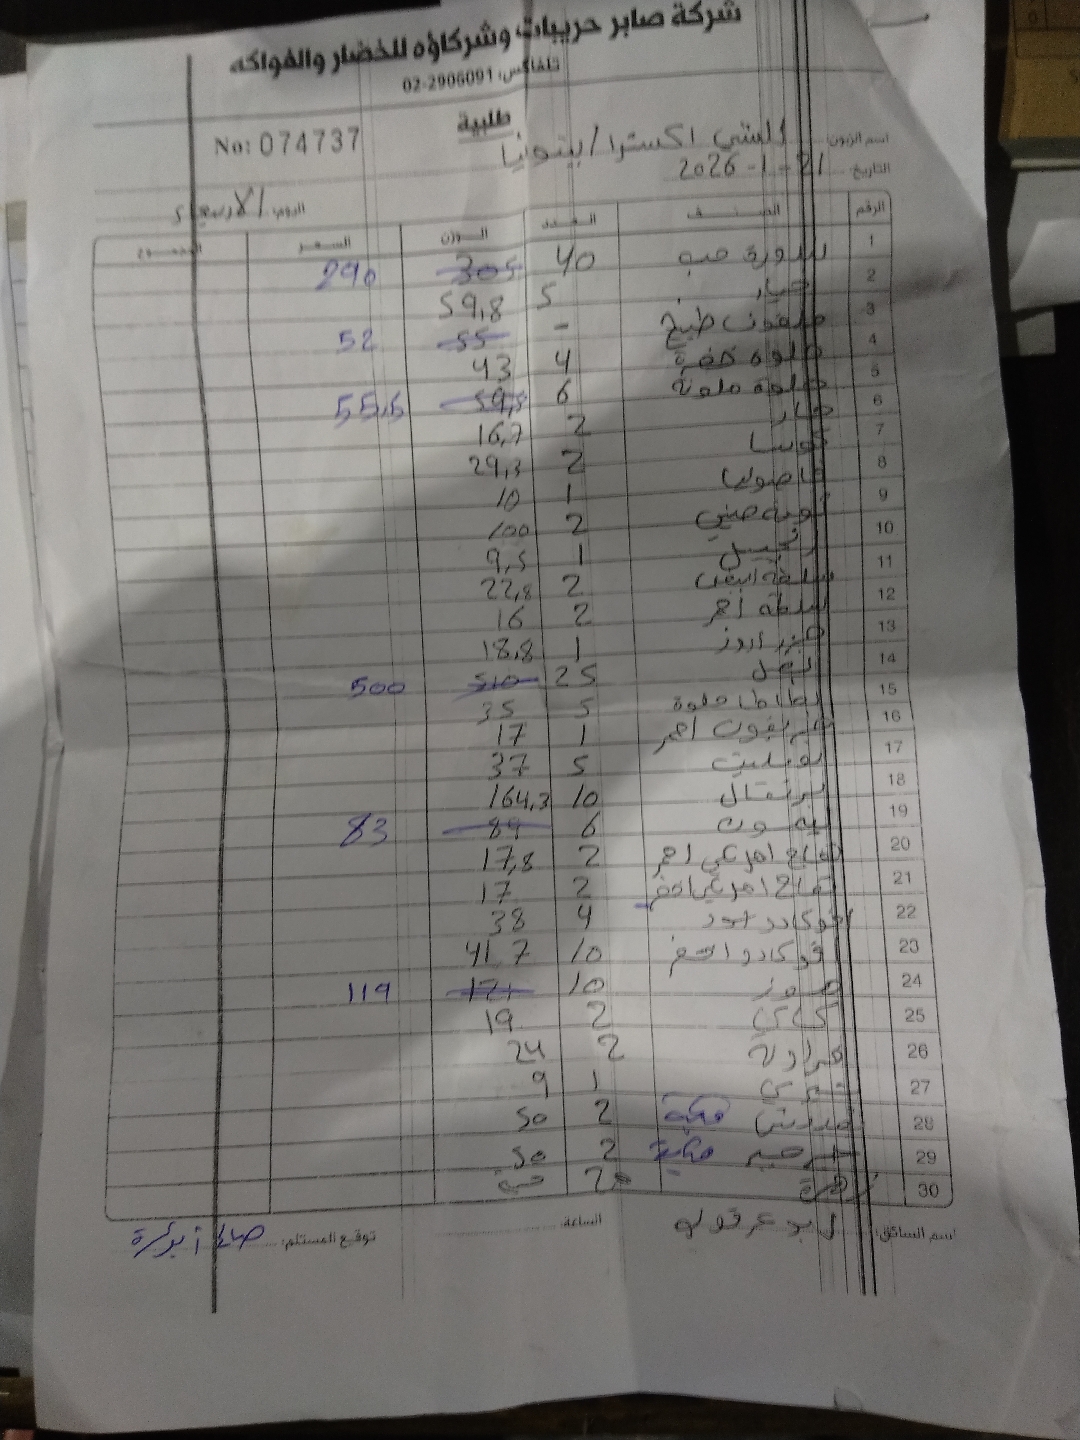 شركة صابر حريبات وشركاؤه للخضار والفواكه
تلفاكس: 02-2906091
طلبية
No: 074737
اسم الزبون: اكسترا / بيتونيا
التاريخ: 21 - 1 - 2026
اليوم: الاربعاء
الرقم الصنف العدد الوزن السعر المجموع
1 بندورة حب 40 305 290
2 خيار 5 59,8
3 ملفوف طبيخ - 55 52
4 4 43
5 حلوة ملونة 6 59,5 55,5
6 2 16,7
7 كوسا 2 29,3
8 فاصوليا 1 10
9 صيني 2 100
10 زنجبيل 1 9,5
11 2 22,8
12 احمر 2 16
13 جزر 1 18,8
14 بصل 25 510 500
15 بطاطا حلوة 5 35
16 احمر 1 17
17 5 37
18 برتقال 10 164,3
19 ليمون 6 84 83
20 تفاح امريكي احمر 2 17,8
21 تفاح امريكي اخضر 2 17
22 افوكادو 4 38
23 افوكادو اخضر 10 41,7
24 موز 10 121 119
25 كاكي 2 19
26 فراولة 2 24
27 1 9
28 2 50
29 جرجير 2 50
30 زهرة 2
اسم السائق: الساعة: توقيع المستلم: